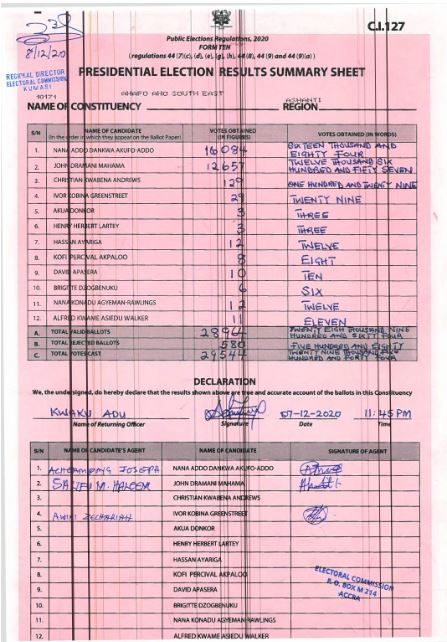 8/12/20
C.I.127
Public Elections Regulations, 2020
FORM TEN
(regulations 44 (7)(c), (d), (e), (g), (h), 44(8), 44 (9) and 44 (9)(a))
REGIONAL DIRECTOR
ELECTORAL COMMISSION
KUMASI
PRESIDENTIAL ELECTION RESULTS SUMMARY SHEET
AHAFO ANO SOUTH EAST
ASHANTI
NAME OF CONSTITUENCY REGION
S/N NAME OF CANDIDATE (In the order in which they appear on the Ballot Paper) VOTES OBTAINED (IN FIGURES) VOTES OBTAINED (IN WORDS)
1. NANA ADDO DANKWA AKUFO-ADDO 16084 SIXTEEN THOUSAND AND EIGHTY FOUR
2. JOHN DRAMANI MAHAMA 12657 TWELVE THOUSAND SIX HUNDRED AND FIFTY SEVEN
3. CHRISTIAN KWABENA ANDREWS 129 ONE HUNDRED AND TWENTY NINE
4. IVOR KOBINA GREENSTREET 29 TWENTY NINE
5. AKUA DONKOR 3 THREE
6. HENRY HERBERT LARTEY 3 THREE
7. HASSAN AYARIGA 12 TWELVE
8. KOFI PERCIVAL AKPALOO 8 EIGHT
9. DAVID APASERA 10 TEN
10. BRIGITTE DZOGBENUKU 6 SIX
11. NANA KONADU AGYEMAN-RAWLINGS 12 TWELVE
12. ALFRED KWAME ASIEDU WALKER 11 ELEVEN
A. TOTAL VALID BALLOTS 28964 TWENTY EIGH THOUSAND NINE HUNDRED AND SIXTY FOUR
B. TOTAL REJECTED BALLOTS 580 FIVE HUNDRED AND EIGHTY
C. TOTAL VOTES CAST 29544 TWENTY NINE THOUSAND FIVE HUNDRED AND FORTY FOUR
DECLARATION
We, the undersigned, do hereby declare that the results shown above are true and accurate account of the ballots in this Constituency
KWAKU ADU 07-12-2020 11:45PM
Name of Returning Officer Signature Date Time
S/N NAME OF CANDIDATE'S AGENT NAME OF CANDIDATE SIGNATURE OF AGENT
1. ACHEAMPONG JOSEPH NANA ADDO DANKWA AKUFO-ADDO
2. M. HALEEM JOHN DRAMANI MAHAMA
3. CHRISTIAN KWABENA ANDREWS
4. AWINI ZECHARIAH IVOR KOBINA GREENSTREET
5. AKUA DONKOR
6. HENRY HERBERT LARTEY
7. HASSAN AYARIGA
8. KOFI PERCIVAL AKPALOO
9. DAVID APASERA
10. BRIGITTE DZOGBENUKU
11. NANA KONADU AGYEMAN-RAWLINGS
12. ALFRED KWAME ASIEDU WALKER
ELECTORAL COMMISSION
P. O. BOX M 214
ACCRA